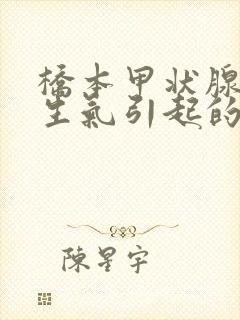 橋本甲状腺
生氣引起的
陳星宇